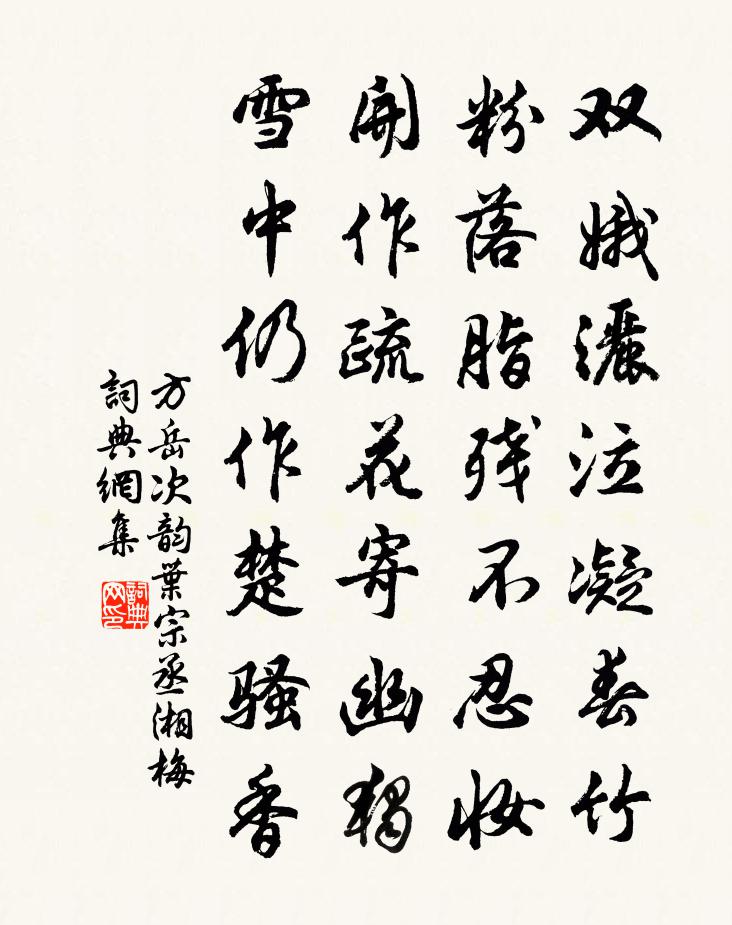 双娥灑泣凝春竹
粉落脂残不忍妆
開作疏花寄幽獨
雪中仍作楚骚香
方岳次韵葉宗丞湘梅
詞典網集
詞典网印